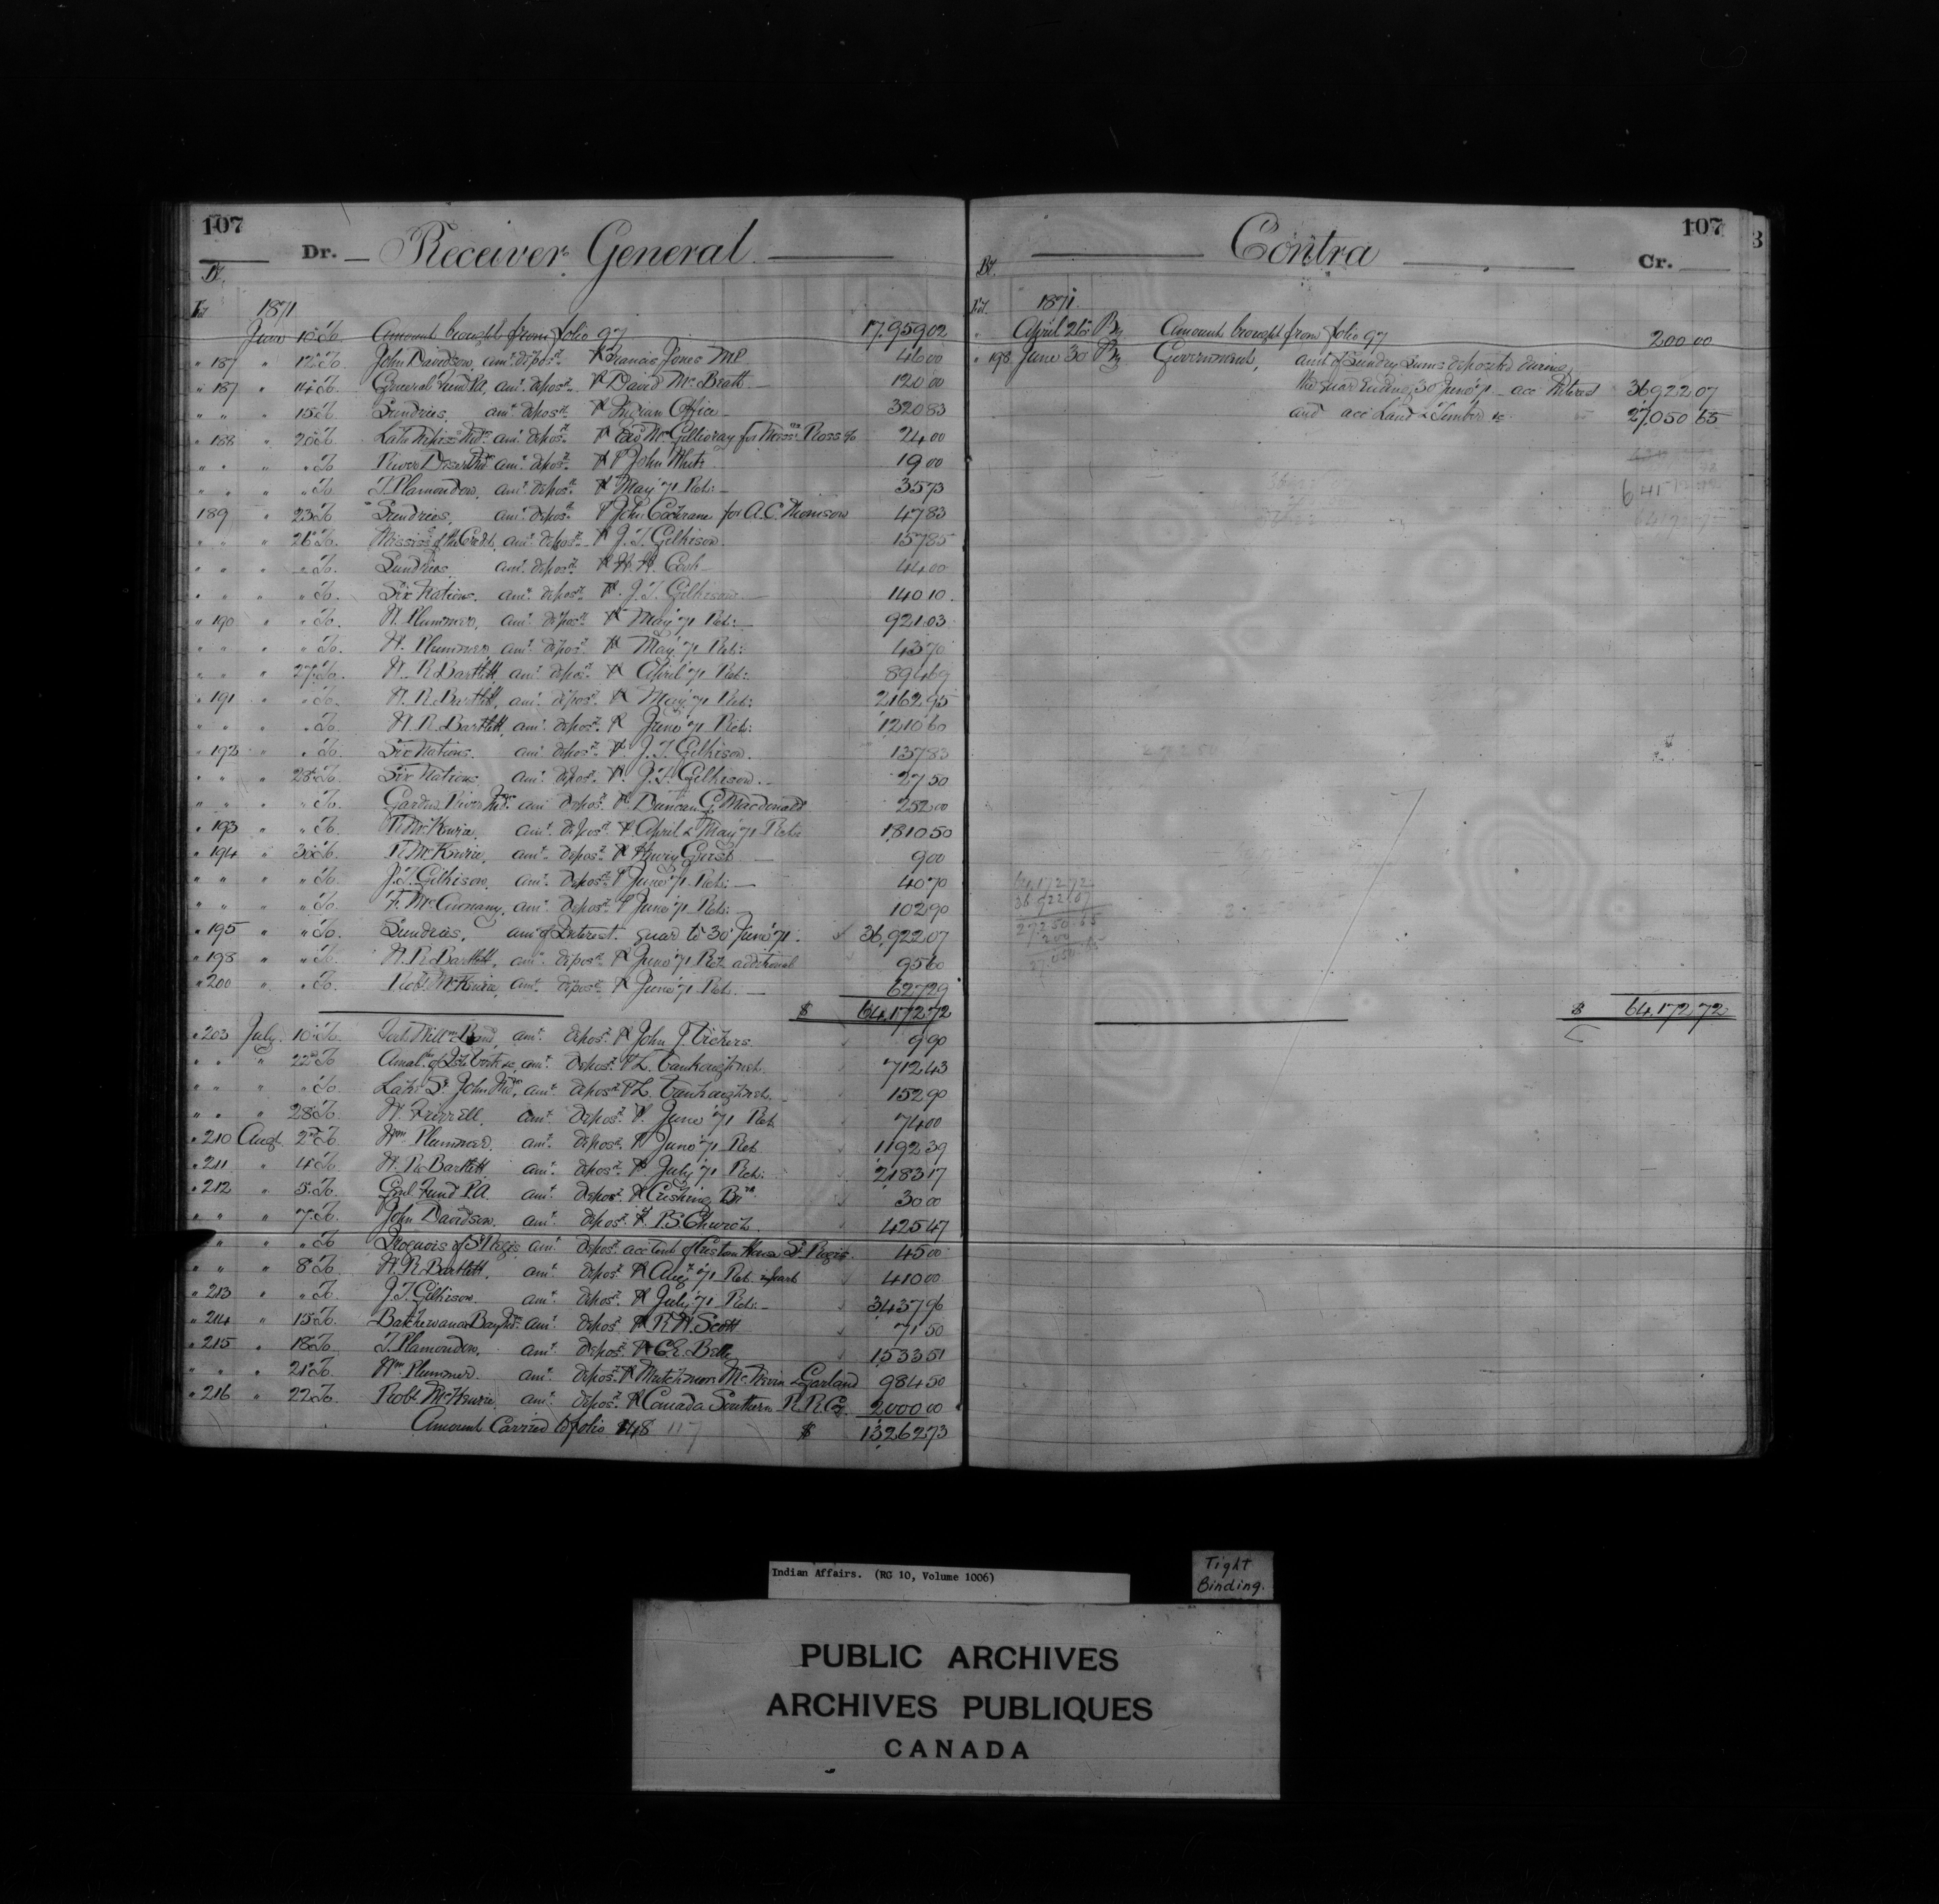 107 Dr. Receiver General
Dr.
Fol 1871
June 10 To Amount brought from folio 97 17,959 02
" 187 " 12 To John Davidson, amt. depost. ⅌ Francis Jones M.P. 46 00
" 187 " 14 To General Fund P.A., amt. depost. ⅌ David McBeath 120 00
" " " 15 To Sundries, amt. depost. ⅌ Indian Office 320 83
" 188 " 20 To Lake Nipiss. Inds. amt. depost. ⅌ Geo McGillivray for Messrs. Ross & Co 24 00
" " " " To River Desert Inds. amt. depost. ⅌ John White 19 00
" " " " To T. Plamondon, amt. depost. ⅌ May '71 Ret: 35 73
189 " 23 To Sundries, amt. depost. ⅌ John Cochrane for A.C. Thomson 47 83
" " " 26 To Mississ. of the Credit, amt. depost. ⅌ J.T. Gilkison 157 85
" " " " To Sundries, amt. depost. ⅌ Cash 44 00
" " " " To Six Nations, amt. depost. ⅌ J.T. Gilkison 140 10
" 190 " " To W. Plummer, amt. depost. ⅌ May '71 Ret: 921 03
" " " " To W. Plummer, amt. depost. ⅌ May '71 Ret: 43 70
" " " 27 To W.R. Bartlett, amt. depost. ⅌ April '71 Ret: 894 69
" 191 " " To W.R. Bartlett, amt. depost. ⅌ May '71 Ret: 2162 95
" " " " To W.R. Bartlett, amt. depost. ⅌ June '71 Ret: 1210 60
" 192 " " To Six Nations, amt. depost. ⅌ J.T. Gilkison 137 83
" " " 28 To Six Nations, amt. depost. ⅌ J.T. Gilkison 27 50
" " " " To Garden River Inds. amt. depost. ⅌ Duncan G. Macdonald 252 00
" 193 " " To R. McKenzie, amt. depost. ⅌ April & May '71 Rets: 1810 50
" 194 " 30 To R. McKenzie, amt. depost. ⅌ Henry 9 00
" " " " To J.T. Gilkison, amt. depost. ⅌ June '71 Ret: 40 70
" " " " To F. McAnnany, amt. depost. ⅌ June '71 Ret: 102 90
" 195 " " To Sundries, amt. of Interest quar to 30 June '71 36,922 07
" 198 " " To W.R. Bartlett, amt. depost. ⅌ June '71 Ret. additional 95 60
" 200 " " To Robt. McKenzie, amt. depost. ⅌ June '71 Ret: 627 29
$ 64,172 72
" 203 July 10 To Fort Willm. Band, amt. depost. ⅌ John J. Vickers 9 90
" " " 22 To amt. depost. ⅌ L. Vankoughnet 712 43
" " " " To Lake St. John Inds. amt. depost. ⅌ L. Vankoughnet 152 90
" " " 28 To amt. depost. ⅌ June '71 Ret. 74 00
" 210 Augt. 2 To Wm. Plummer, amt. depost. ⅌ June '71 Ret. 1192 39
" 211 " 4 To W.R. Bartlett amt. depost. ⅌ July '71 Ret: 2183 17
" 212 " 5 To Genl. Fund P.A. amt. depost. ⅌ Cushing 30 00
" " " 7 To John Davidson, amt. depost. ⅌ P.S. Church 425 47
" " " " To Iroquois of St. Regis amt. depost. acc rent of Custom House St. Regis 45 00
" " " 8 To W.R. Bartlett, amt. depost. ⅌ Augt. '71 Ret. in part 410 00
" 213 " " To J.T. Gilkison, amt. depost. ⅌ July '71 Ret: 3437 96
" 214 " 15 To Batchewana Bay Inds. amt. depost. ⅌ R.W. Scott 71 50
" 215 " 18 To T. Plamondon, amt. depost. ⅌ C.E. Belle 1533 51
" " " 21 To Wm. Plummer. amt. depost. ⅌ Mutchmor McNevin & Garland 984 50
" 216 " 22 To Robt. McKenzie. amt. depost. ⅌ Canada Southern R.R. Co. 2000 00
Amount Carried to folio 148 117 $ 13,262 73
Contra 107 Cr.
Dr.
Fol. 1871
" April 26 By Amount brought from folio 97 200 00
" 198 June 30 By Government, amt. of Sundry Sums deposited during
the quar ending 30 June '71 acc Interest 36922 07
and acc Land & Timber &c 27,050 65
64172 72
64,172.72
36,922.07
27,250.65
200
27,050.65
$ 64,172 72
3
Indian Affairs. (RG 10, Volume 1006)
Tight
Binding.
PUBLIC ARCHIVES
ARCHIVES PUBLIQUES
CANADA